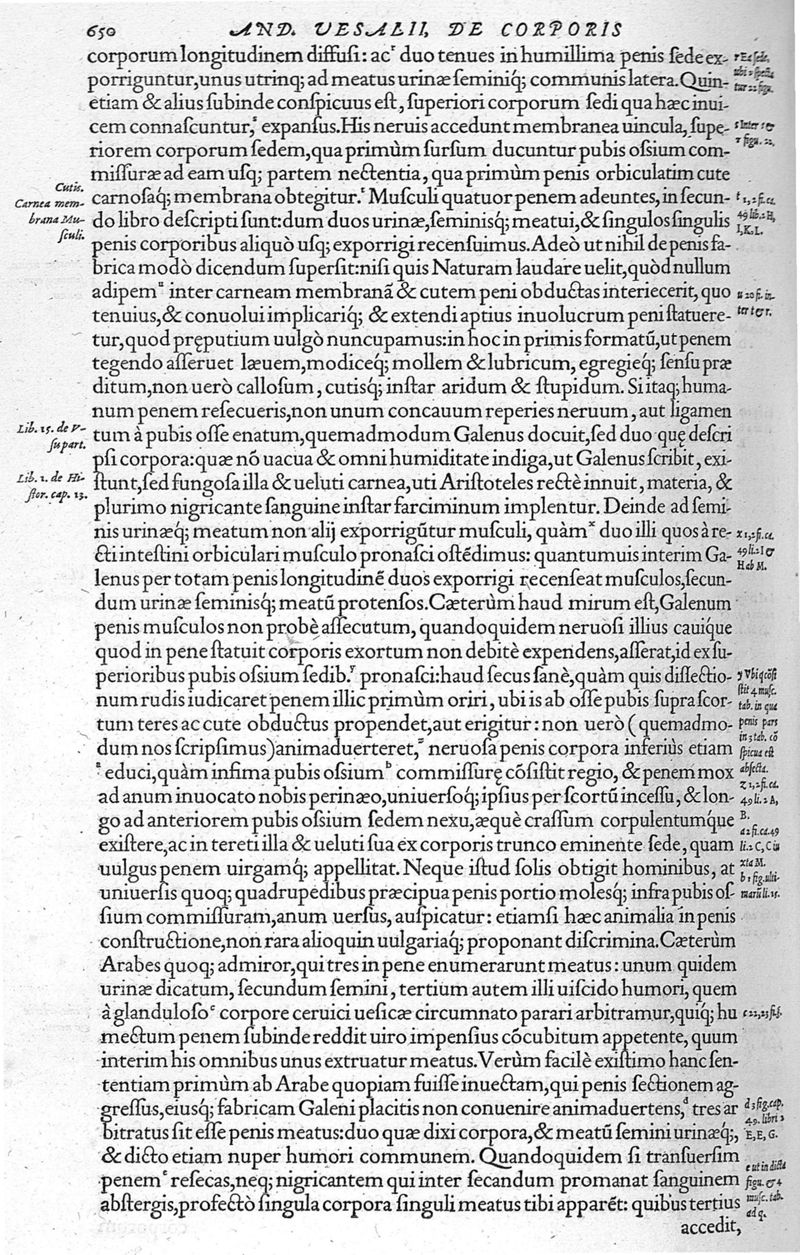 650 AND. VESALII, DE CORPORIS
corporum longitudinem diffusi: acʳ duo tenues in humillima penis sede ex-
porriguntur, unus utrinq; ad meatus urinæ seminiq; communis latera. Quin-
etiam & alius subinde conspicuus est, superiori corporum sedi qua hæc inui-
cem connascuntur,ˢ expansus. His neruis accedunt membranea uincula, supe-
riorem corporum sedem, qua primùm sursum ducuntur pubis ossium com-
missuræ ad eam usq; partem nectentia, qua primùm penis orbiculatim cute
carnosaq; membrana obtegitur.ᵗ Musculi quatuor penem adeuntes, in secun-
do libro descripti sunt: dum duos urinæ, seminisq; meatui, & singulos singulis
penis corporibus aliquò usq; exporrigi recensuimus. Adeò ut nihil de penis fa-
brica modò dicendum supersit: nisi quis Naturam laudare uelit, quòd nullum
adipemᵘ inter carneam membranã & cutem peni obductas interiecerit, quo
tenuius, & conuolui implicariq; & extendi aptius inuolucrum peni statuere-
tur, quod pręputium uulgò nuncupamus: in hoc in primis formatũ, ut penem
tegendo asseruet læuem, modiceq; mollem & lubricum, egregieq; sensu præ
ditum, non uerò callosum, cutisq; instar aridum & stupidum. Si itaq; huma-
num penem resecueris, non unum concauum reperies neruum, aut ligamen
tum à pubis osse enatum, quemadmodum Galenus docuit, sed duo quę descri
psi corpora: quæ nõ uacua & omni humiditate indiga, ut Galenus scribit, exi-
stunt, sed fungosa illa & ueluti carnea, uti Aristoteles rectè innuit, materia, &
plurimo nigricante sanguine instar farciminum implentur. Deinde ad semi-
nis urinæq; meatum non alij exporrigũtur musculi, quàmˣ duo illi quos à re-
cti intestini orbiculari musculo pronasci ostẽdimus: quantumuis interim Ga-
lenus per totam penis longitudinẽ duos exporrigi recenseat musculos, secun-
dum urinæ seminisq; meatũ protensos. Cæterùm haud mirum est, Galenum
penis musculos non probè assecutum, quandoquidem neruosi illius cauique
quod in pene statuit corporis exortum non debitè expendens, asserat, id ex su-
perioribus pubis ossium sedib.ʸ pronasci: haud secus sanè, quàm quis dissectio-
num rudis iudicaret penem illic primùm oriri, ubi is ab osse pubis supra scor-
tum teres ac cute obductus propendet, aut erigitur: non uerò (quemadmo-
dum nos scripsimus) animaduerteret,ᶻ neruosa penis corpora inferiùs etiam
ᵃ educi, quàm infima pubis ossiumᵇ commissurę cõsistit regio, & penem mox
ad anum inuocato nobis perinæo, uniuersoq; ipsius per scortũ incessu, & lon-
go ad anteriorem pubis ossium sedem nexu, æquè crassum corpulentumq́ue
existere, ac in tereti illa & ueluti sua ex corporis trunco eminente sede, quam
uulgus penem uirgamq; appellitat. Neque istud solis obtigit hominibus, at
uniuersis quoq; quadrupedibus præcipua penis portio molesq; infra pubis os-
sium commissuram, anum uersus, auspicatur: etiamsi hæc animalia in penis
constructione, non rara alioquin uulgariaq; proponant discrimina. Cæterùm
Arabes quoq; admiror, qui tres in pene enumerarunt meatus: unum quidem
urinæ dicatum, secundum semini, tertium autem illi uiscido humori, quem
à glandulosoᶜ corpore ceruici uesicæ circumnato parari arbitramur, quiq; hu
mectum penem subinde reddit uiro impensius cõcubitum appetente, quum
interim his omnibus unus extruatur meatus. Verùm facilè existimo hanc sen-
tentiam primùm ab Arabe quopiam fuisse inuectam, qui penis sectionem ag-
gressus, eiusq; fabricam Galeni placitis non conuenire animaduertens,ᵈ tres ar
bitratus sit esse penis meatus: duo quæ dixi corpora, & meatũ semini urinæq;,
& dicto etiam nuper humori communem. Quandoquidem si transuersim
penemᵉ resecas, neq; nigricantem qui inter secandum promanat sanguinem
abstergis, profectò singula corpora singuli meatus tibi apparẽt: quibus tertius
accedit,
Cutis.
Carnea mem-
brana Mu-
sculi.
Lib. 15. de V-
su part.
Lib. 1. de Hi-
stor. cap. 13.
ubi 2 
tur 22 figu.
s Inter s &
r figu. 22,
t 1, 2 fi. ca.
49 lib. 2 H,
I, K, L.
u 20 fi. in-
ter t & r.
x 1, 2 fi. ca.
49 li. 2 I &
H ab M.
y Vbi q cõsi
stit 4 musc.
tab. in qua
penis pars
in 3 tab. cõ
spicua est
absecta.
z 1, 2 fi. ca.
49 li. 2 A,
B.
a 2 fi. ca. 49
li. 2 C, C iu
xta M.
b 1 fig. ulti-
c 22, 23 fi.
d 3 fig. cap.
49. libri 2
E, E, G.
e ut in dicta
figu. & 4
musc. tab.
ad q.